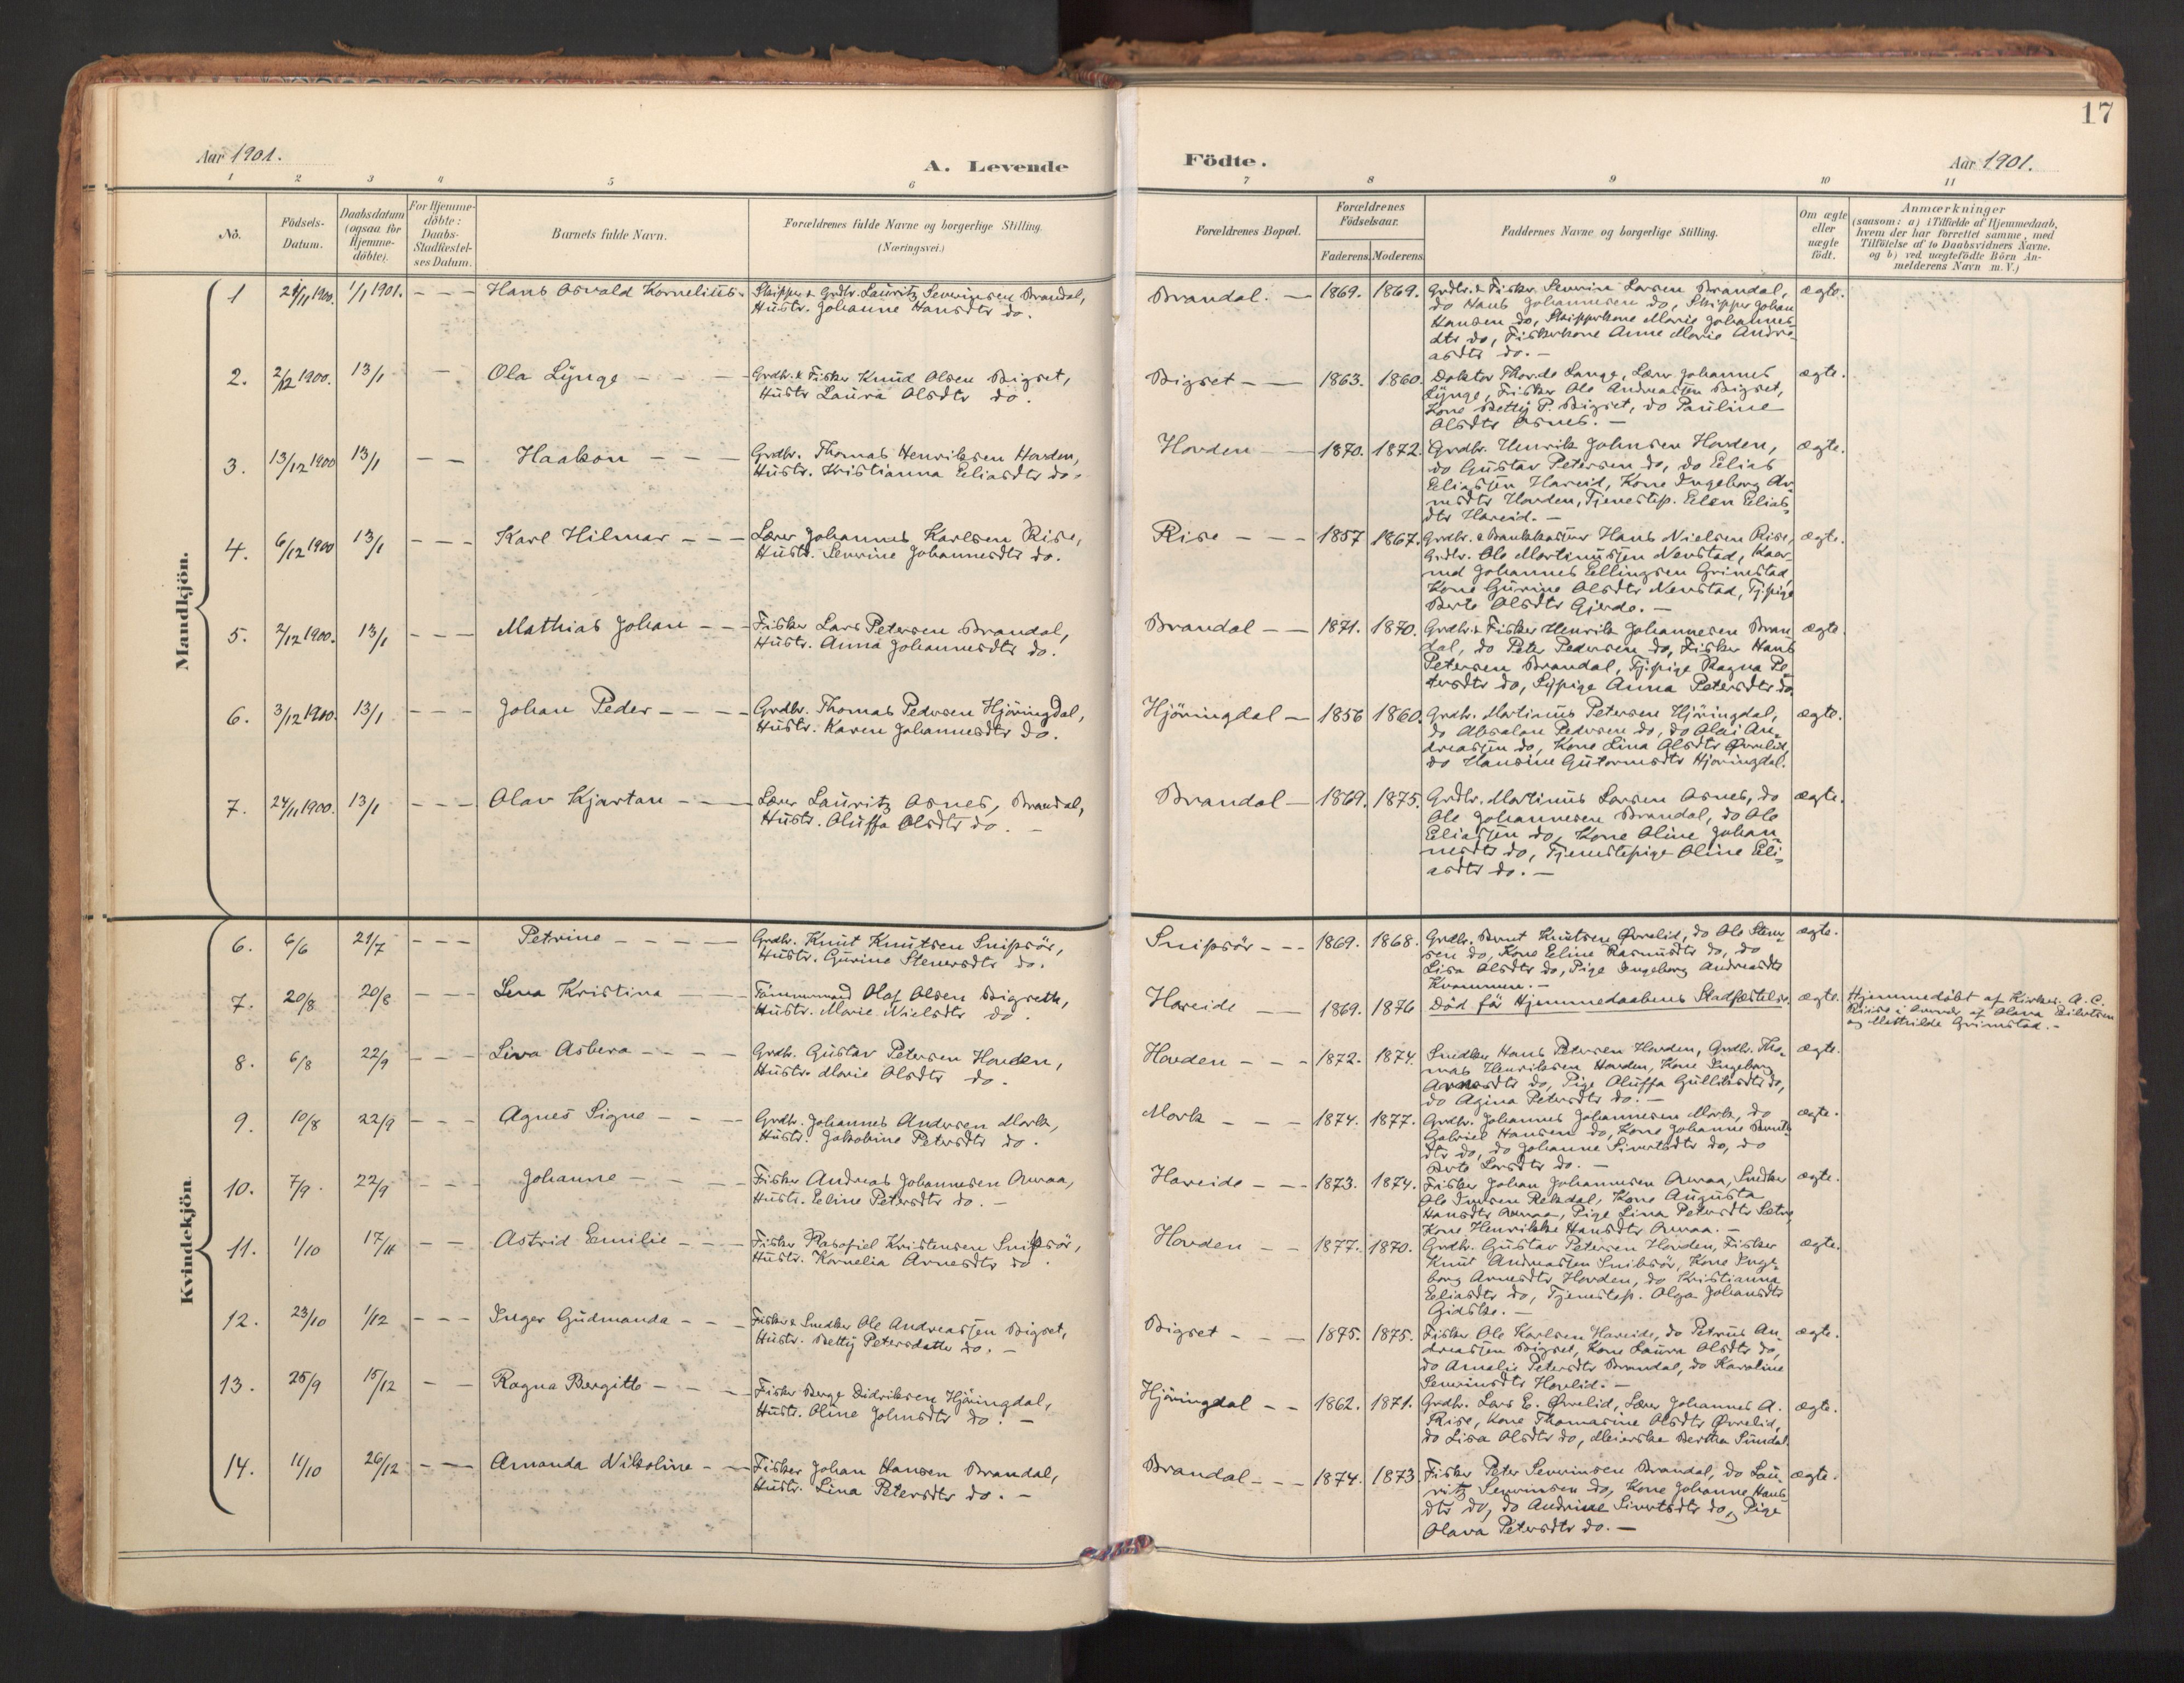 17
Aar 1901.
A. Levende
Födte.
Aar 1901.
1 2 3 4 5 6 7 8 9 10 11
No.
Födsels-Datum.
Daabsdatum (ogsaa for Hjemme-döbte).
For Hjemme-döbte: Daabs-Stadfæstel-ses Datum.
Barnets fulde Navn.
Forældrenes fulde Navne og borgerlige Stilling.
(Næringsvei.)
Forældrenes Bopæl.
Forældrenes Födselsaar.
Faderens. Moderens.
Faddernes Navne og borgerlige Stilling.
Om ægte eller uægte födt.
Anmærkninger
(saasom: a) i Tilfælde af Hjemmedaab, hvem der har forrettet samme, med Tilföielse af to Daabsvidners Navne. og b) ved uægtefödte Börn An-melderens Navn m. V.)
Mandkjön.
1 24/11 1900. 1/1 1901. - - - Hans Osvald Kornelius. Skipper & Grdbr. Lauritz Severinsen Brandal,
Hustr. Johanne Hansdtr do.
Brandal. — 1869. 1869. Grdbr. & Fisker Severin Larsen Brandal, ægte.
do Hans Johannesen do, Skipper Johan
Hansen do, Skipperkone Marie Johannes-
dtr do, Fiskerkone Anne Marie Andre-
asdtr do. —
2. 2/12 1900. 13/1 - Ola Lynge - - - Grdbr. & Fisker Knud Olsen Bigset,
Hustr Laura Olsdtr do.
Bigset - — 1863. 1860. Doktor Thorvds Lange, Lærer Johannes ægte.
Lynge, Fisker Ole Andreassen Bigset,
Kone Betty P. Bigset, do Pauline
Olsdtr Osnes. —
3. 13/12 1900 13/1 - - Haakon - - - Grdbr. Thomas Henriksen Hovden,
Hustr. Kristianna Eliasdtr do.
Hovden — 1870. 1872. Grdbr. Henrik Johnsen Hovden, ægte.
do Gustav Petersen do, do Elias
Eliassen Hareid, Kone Ingeborg Ar-
nesdtr Hovden, Tjenestep. Elen Elias-
dtr Hareid. —
4. 6/12 1900 13/1 - - - Karl Hilmar - - - Lærer Johannes Karlsen Rise,
Hustr. Severine Johannesdtr do.
Rise - - - 1857 1867. Grdbr. & Bankkasserer Hans Nielsen Rise, ægte.
Grdbr. Ole Martinussen Nevstad, Kaar-
md Johannes Ellingsen Grimstad,
Kone Gurine Olsdtr Nevstad, Tjpige
Berte Olsdtr Gjerde. —
5. 2/12 1900. 13/1 - - - Mathias Johan - - - Fisker Lars Petersen Brandal,
Hustr. Anna Johannesdtr do.
Brandal - — 1871. 1870. Grdbr. & Fisker Henrik Johannesen Bran- ægte.
dal, do Peter Pedersen do, Fisker Hans
Petersen Brandal, Tjpige Ragna Pe-
tersdtr do, Sypige Anna Petersdtr do
6. 3/12 1900. 13/1 - - - Johan Peder - - - - Grdbr. Thomas Pedersen Hjöringdal,
Hustr. Karen Johannesdtr do.
Hjöringdal — 1856 1860. Grdbr. Martinus Petersen Hjöringdal, ægte.
do Absalon Pedersen do, do Olai An-
dreassen do, Kone Lina Olsdtr Överlid,
do Hansine Gutormsdtr Hjöringdal.
7. 24/11 1900. 13/1 - - - Olav Kjartan - - — Lærer Lauritz Osnes, Brandal,
Hustr. Oluffa Olsdtr do. —
Brandal — 1869. 1875. Grdbr. Martinus Larsen Osnes, do ægte.
Ole Johannesen Brandal, do Ole
Eliassen do, Kone Oline Johan-
nesdtr do, Tjenestepige Oline Eli-
asdtr do. —
Kvindekjön.
6. 6/6 21/7 - - - Petrine - - - - - Grdbr. Knut Knutsen Snipsör,
Hustr. Gurine Stenersdtr do.
Snipsör - - - 1869. 1868. Grdbr. Bernt Knutsen Överlid, do Ole Stener- ægte.
sen do, Kone Eline Rasmusdtr do, do
Lisa Olsdtr do, Pige Ingeborg Andreasdtr
Kvammen. —
7. 20/8 20/8 - - - Lena Kristina - - — Tömmermand Olaf Olsen Bigseth,
Hustr. Marie Nielsdtr do.
Hareide - — 1869. 1876 Död för Hjemmedaabens Stadfæstelse. ægte. Hjemmedöbt af Kirkes. A. C.
Riise i Overvær af Olava Eilertsen
og Mathilde Grimstad. —
8. 6/8 22/9 - - - Liva Asbera - - - - Grdbr. Gustav Petersen Hovden,
Hustr. Marie Olsdtr do.
Hovden - - - 1872. 1874. Snedker Hans Petersen Hovden, Grdbr. Tho- ægte.
mas Henriksen Hovden, Kone Ingeborg
Arnesdtr do, Pige Oluffa Gulliksdtr do,
do Agina Petersdtr do. —
9. 10/8 22/9 - - - Agnes Signe - - - Grdbr. Johannes Andersen Mork,
Hustr. Jakobine Petersdtr do.
Mork - - - 1874. 1877. Grdbr. Johannes Johannesen Mork, do ægte.
Gabriel Hansen do, Kone Johanne Bernts-
dtr do, do Johanne Sivertsdtr do, do
Berte Larsdtr do. —
10. 7/9 22/9 - - Johanne - - - - Fisker Andreas Johannesen Overaa,
Hustr. Eline Petersdtr do. —
Hareide - - - 1873. 1874. Fisker Johan Johannesen Overaa, Snedker ægte.
Ole Iversen Rekdal, Kone Augusta
Hansdtr Overaa, Pige Lina Petersdtr Sætre,
Kone Henrikke Hansdtr Overaa. —
11. 1/10 17/11 - - Astrid Emilie - - - Fisker Kristensen Snipsör,
Hustr. Kornelia Arnesdtr do.
Hovden - - 1877. 1870. Grdbr. Gustav Petersen Hovden, Fisker ægte.
Knut Andreassen Snipsör, Kone Inge-
borg Arnesdtr Hovden, do Kristianna
Eliasdtr do, Tjenestep. Olga Johansdtr
Gidske. —
12. 23/10 1/12 - - - Inger Gudmunda - - - Fisker & Snedker Ole Andreassen Bigset,
Hustr. Betty Petersdatter do. —
Bigset - - — 1875. 1875. Fisker Ole Karlsen Hareide, do Petrus An- ægte.
dreassen Bigset, Kone Laura Olsdtr do,
do Amalie Petersdtr Brandal, do Karoline
Severinsdtr Hovlid. —
13. 25/9 15/12 - - Ragna Bergitte - - - - Fisker Berge Didriksen Hjöringdal,
Hustr. Oline Johnsdtr do. —
Hjöringdal - - 1862. 1871. Grdbr. Lars E. Överlid, Lærer Johannes A. ægte.
Rise, Kone Thomasine Olsdtr Överlid,
do Lisa Olsdtr do, Meierske Bertha Sundal.
14. 11/10 26/12 - - Amanda Nikoline - - Fisker Johan Hansen Brandal,
Hustr. Lina Petersdtr do. —
Brandal - - - 1874. 1873. Fisker Peter Severinsen Brandal, do Lau- ægte.
ritz Severinsen do, Kone Johanne Hans-
dtr do, do Andrine Sivertsdtr do, Pige
Olava Petersdtr do. —